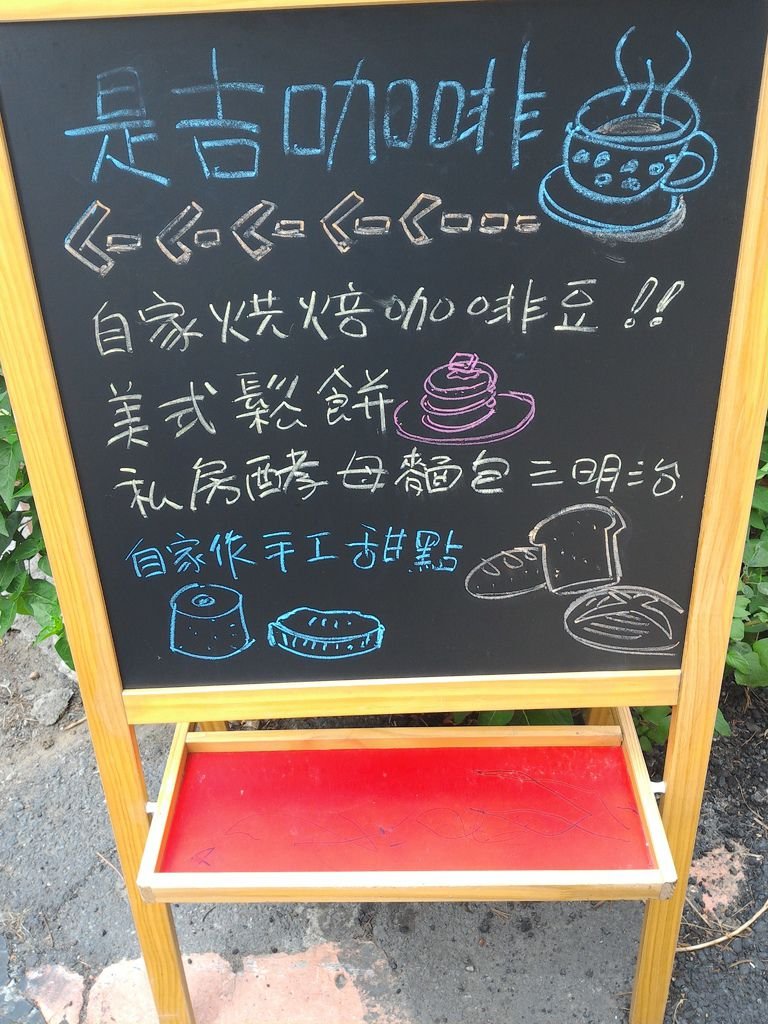 是吉咖啡
自家烘焙咖啡豆!!
美式鬆餅
私房酵母麵包三明治
自家作手工甜點